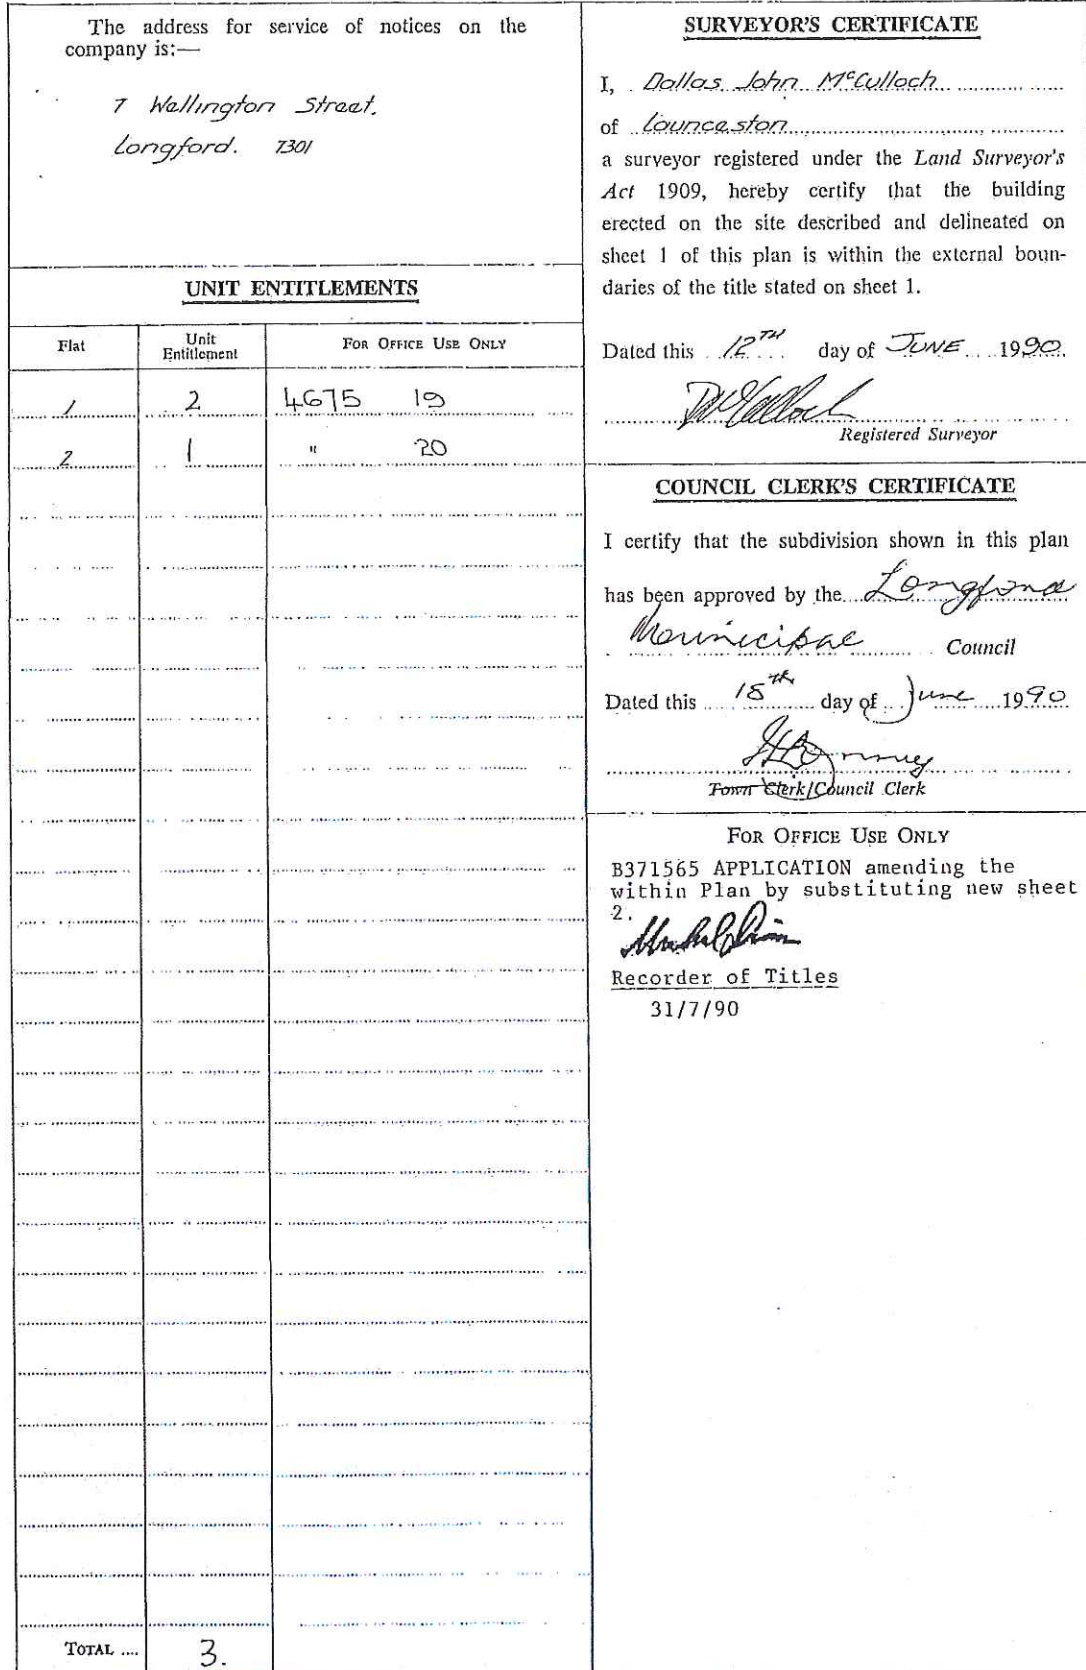 The address for service of notices on the
company is:—
7 Wellington Street,
Longford. 7301
UNIT ENTITLEMENTS
Flat Unit Entitlement FOR OFFICE USE ONLY
1 2 4675 19
2 1 " 20
TOTAL .... 3.
SURVEYOR'S CERTIFICATE
I, Dallas John McCulloch
of Launceston
a surveyor registered under the Land Surveyor's
Act 1909, hereby certify that the building
erected on the site described and delineated on
sheet 1 of this plan is within the external boun-
daries of the title stated on sheet 1.
Dated this 12TH day of JUNE 1990
Registered Surveyor
COUNCIL CLERK'S CERTIFICATE
I certify that the subdivision shown in this plan
has been approved by the Longford
Municipal Council
Dated this 18th day of June 1990
Town Clerk/Council Clerk
FOR OFFICE USE ONLY
B371565 APPLICATION amending the
within Plan by substituting new sheet
2.
Recorder of Titles
31/7/90